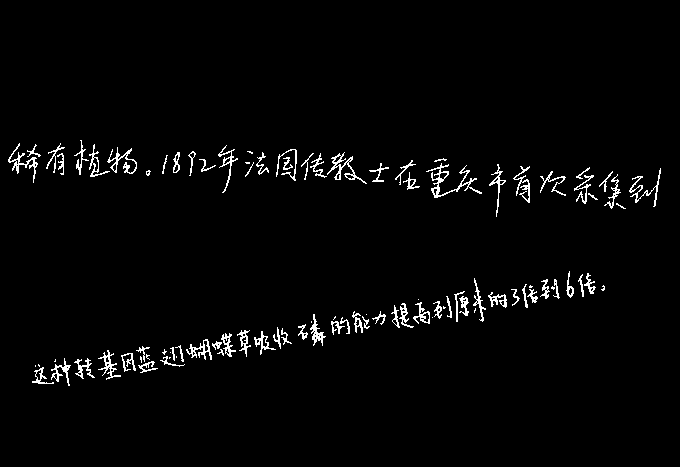 稀有植物。1892年法国传教士在重庆市首次采集到
这种转基因蓝翅蝴蝶草吸收磷的能力提高到原来的3倍到6倍。